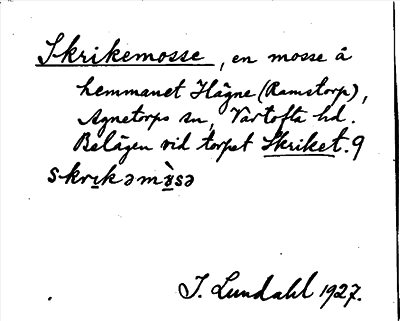 Skrikemosse, en mosse å
hemmanet Hägne (Ramstorp),
Agnetorps sn, Vartofta hd.
Belägen vid torpet Skriket. 9
skrɩkəmɔ̀sə
J. Lundahl 1927.